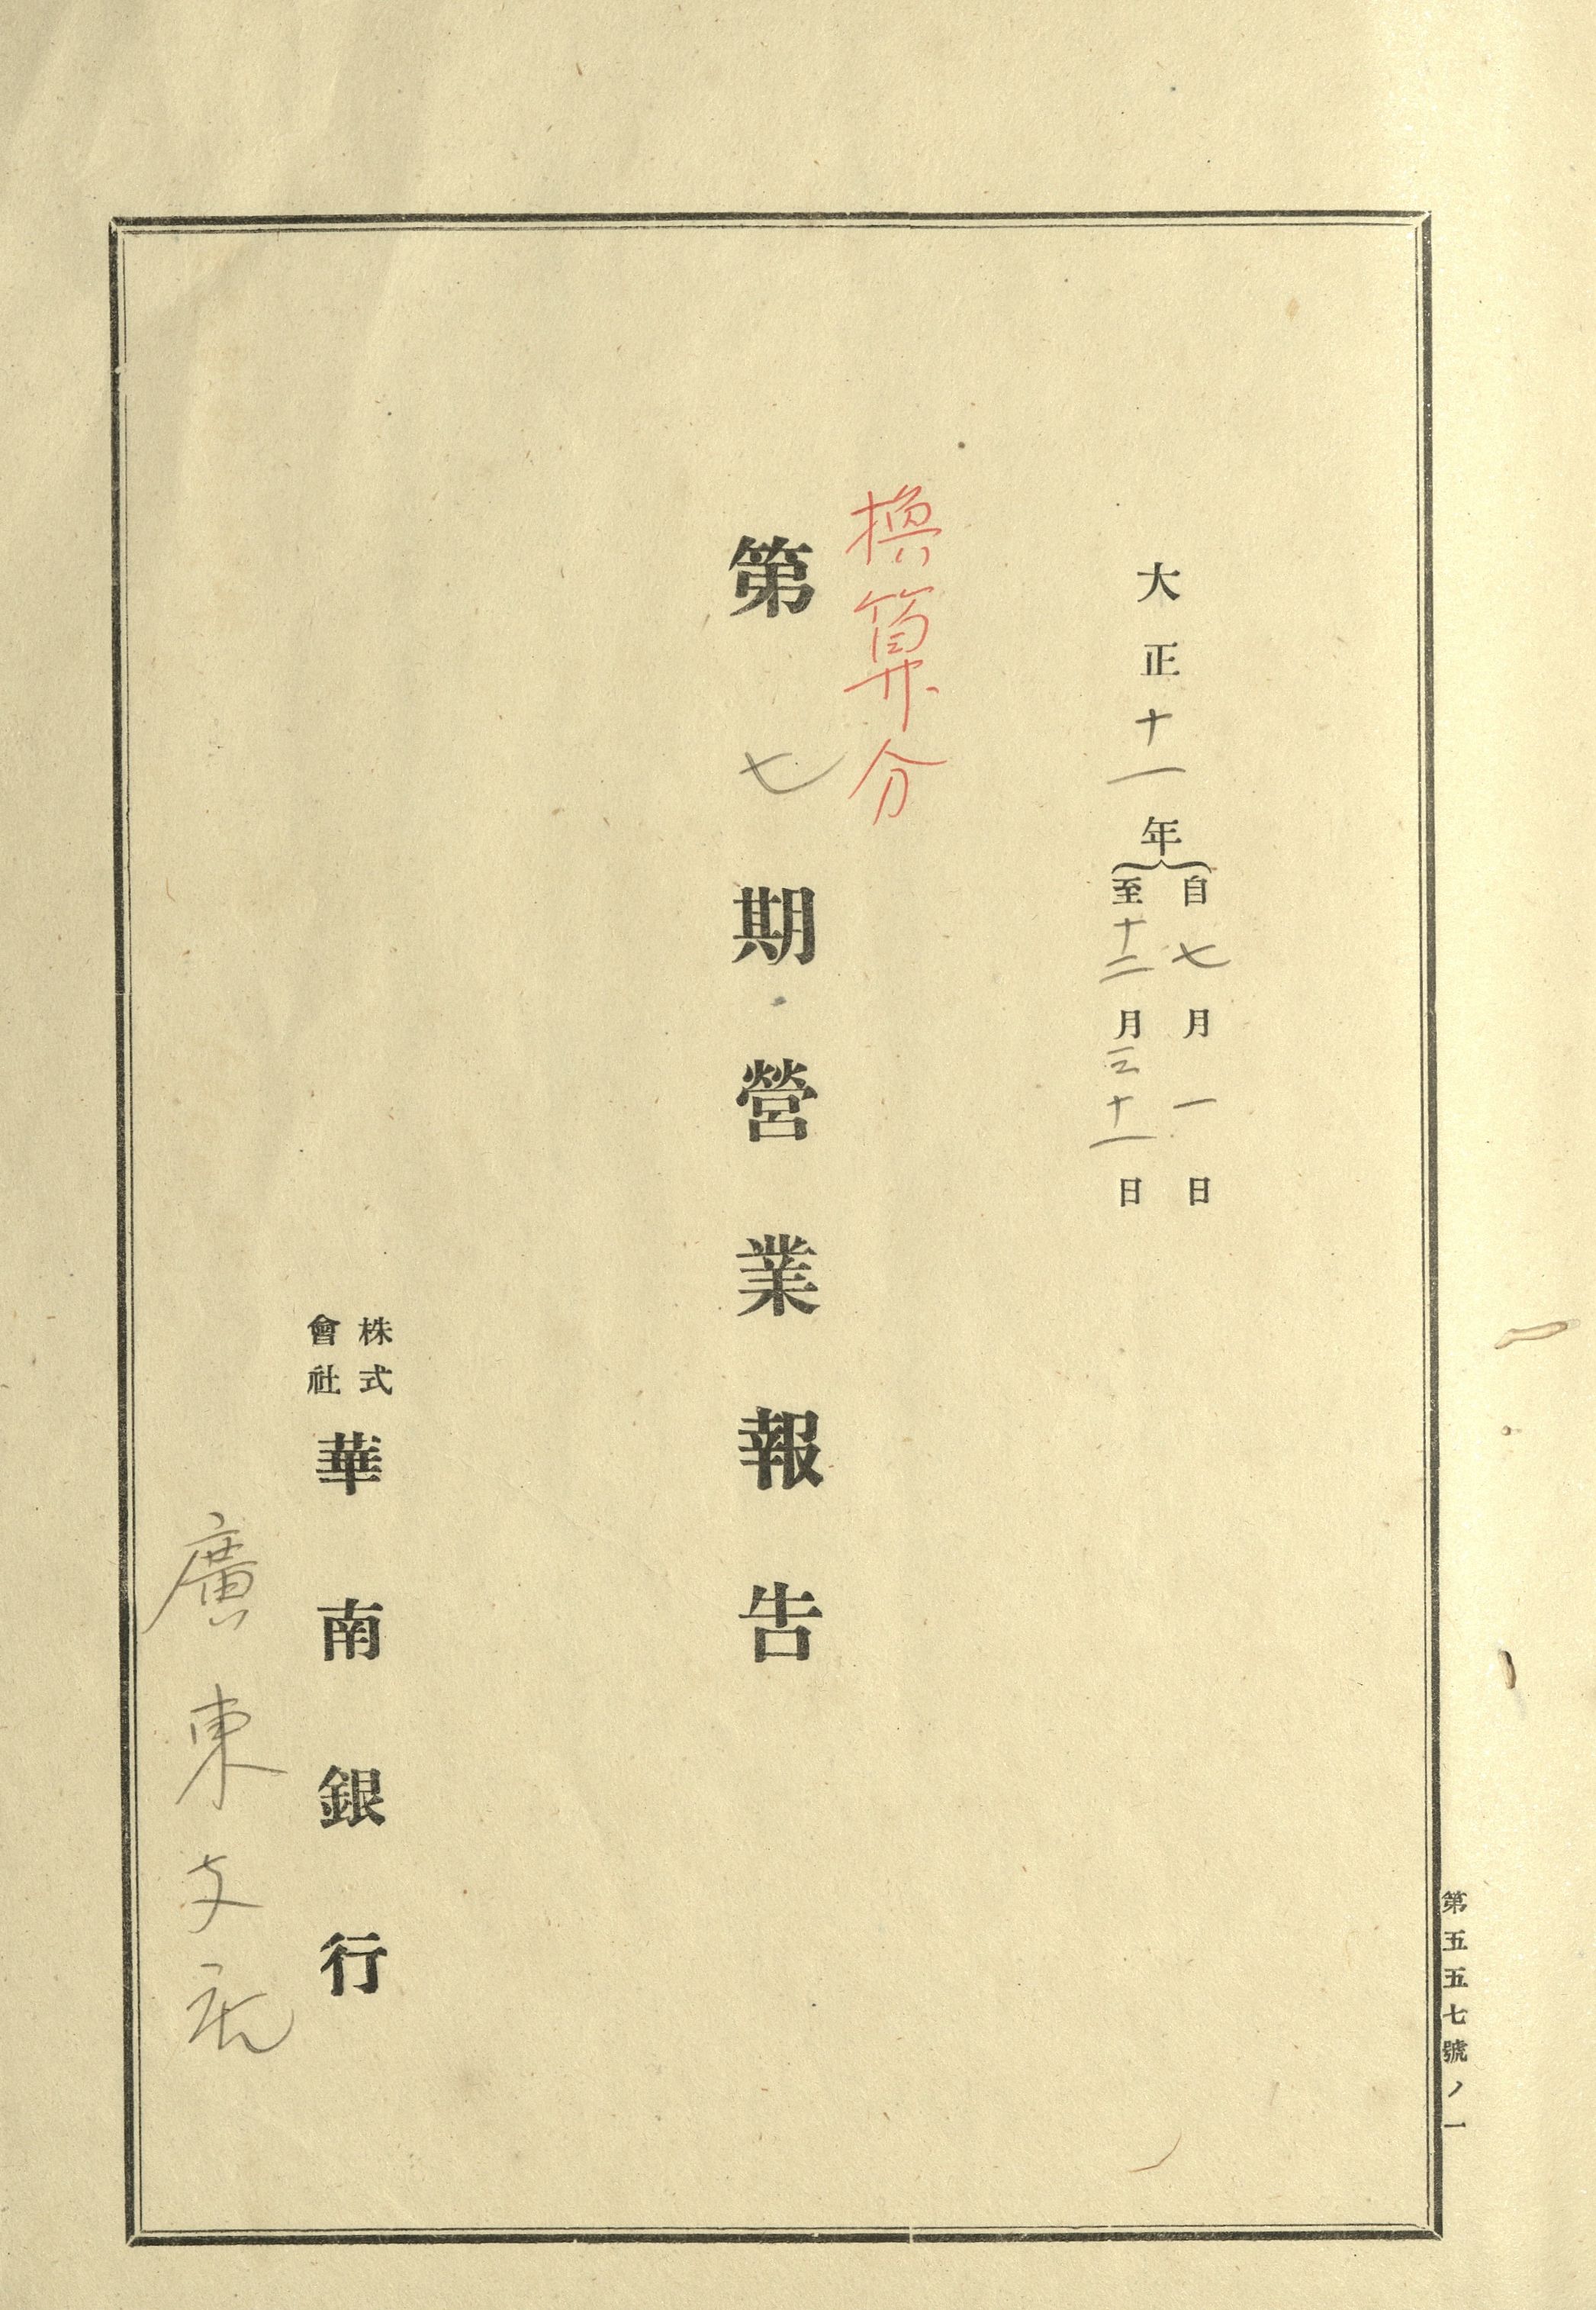 大正十一年
自七月一日
至十二月三十一日
換算分
第七期營業報告
株式會社
華南銀行
廣東支店
第五五七號ノ一